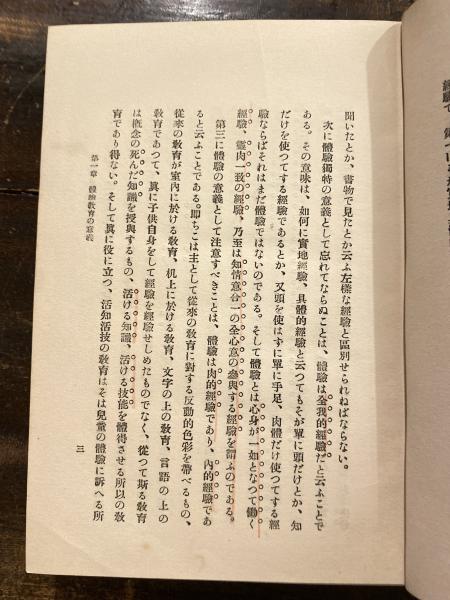 聞いたとか、書物で見たとか云ふ左樣な經驗と區別せられねばならない。
次に體驗獨特の意義として忘れてならぬことは、體驗は全我的經驗だと云ふことで
ある。その意味は、如何に實地經驗、具體的經驗と云つてもそが單に頭だけとか、知
だけを使つてする經驗であるとか、又頭を使はずに單に手足、肉體だけ使つてする經
驗ならばそれはまだ體驗ではないのである。そして體驗とは心身が一如となつて働く
經驗、靈肉一致の經驗、乃至は知情意合一の全心意の參與する經驗を謂ふのである。
第三に體驗の意義として注意すべきことは、體驗は肉的經驗であり、內的經驗であ
ると云ふことである。卽ちこは主として從來の敎育に對する反動的色彩を帶べるもの、
從來の敎育が室內に於ける敎育、机上に於ける敎育、文字の上の敎育、言語の上の
敎育であつて、眞に子供自身をして經驗を經驗せしめたものでなく、從つて斯る敎育
は槪念の死んだ知識を授與するもの、活ける知識、活ける技能を體得させる所以の敎
育であり得ない。そして眞に役に立つ、活知活技の敎育はそは兒童の體驗に訴へる所
第一章 體驗敎育の意義
三